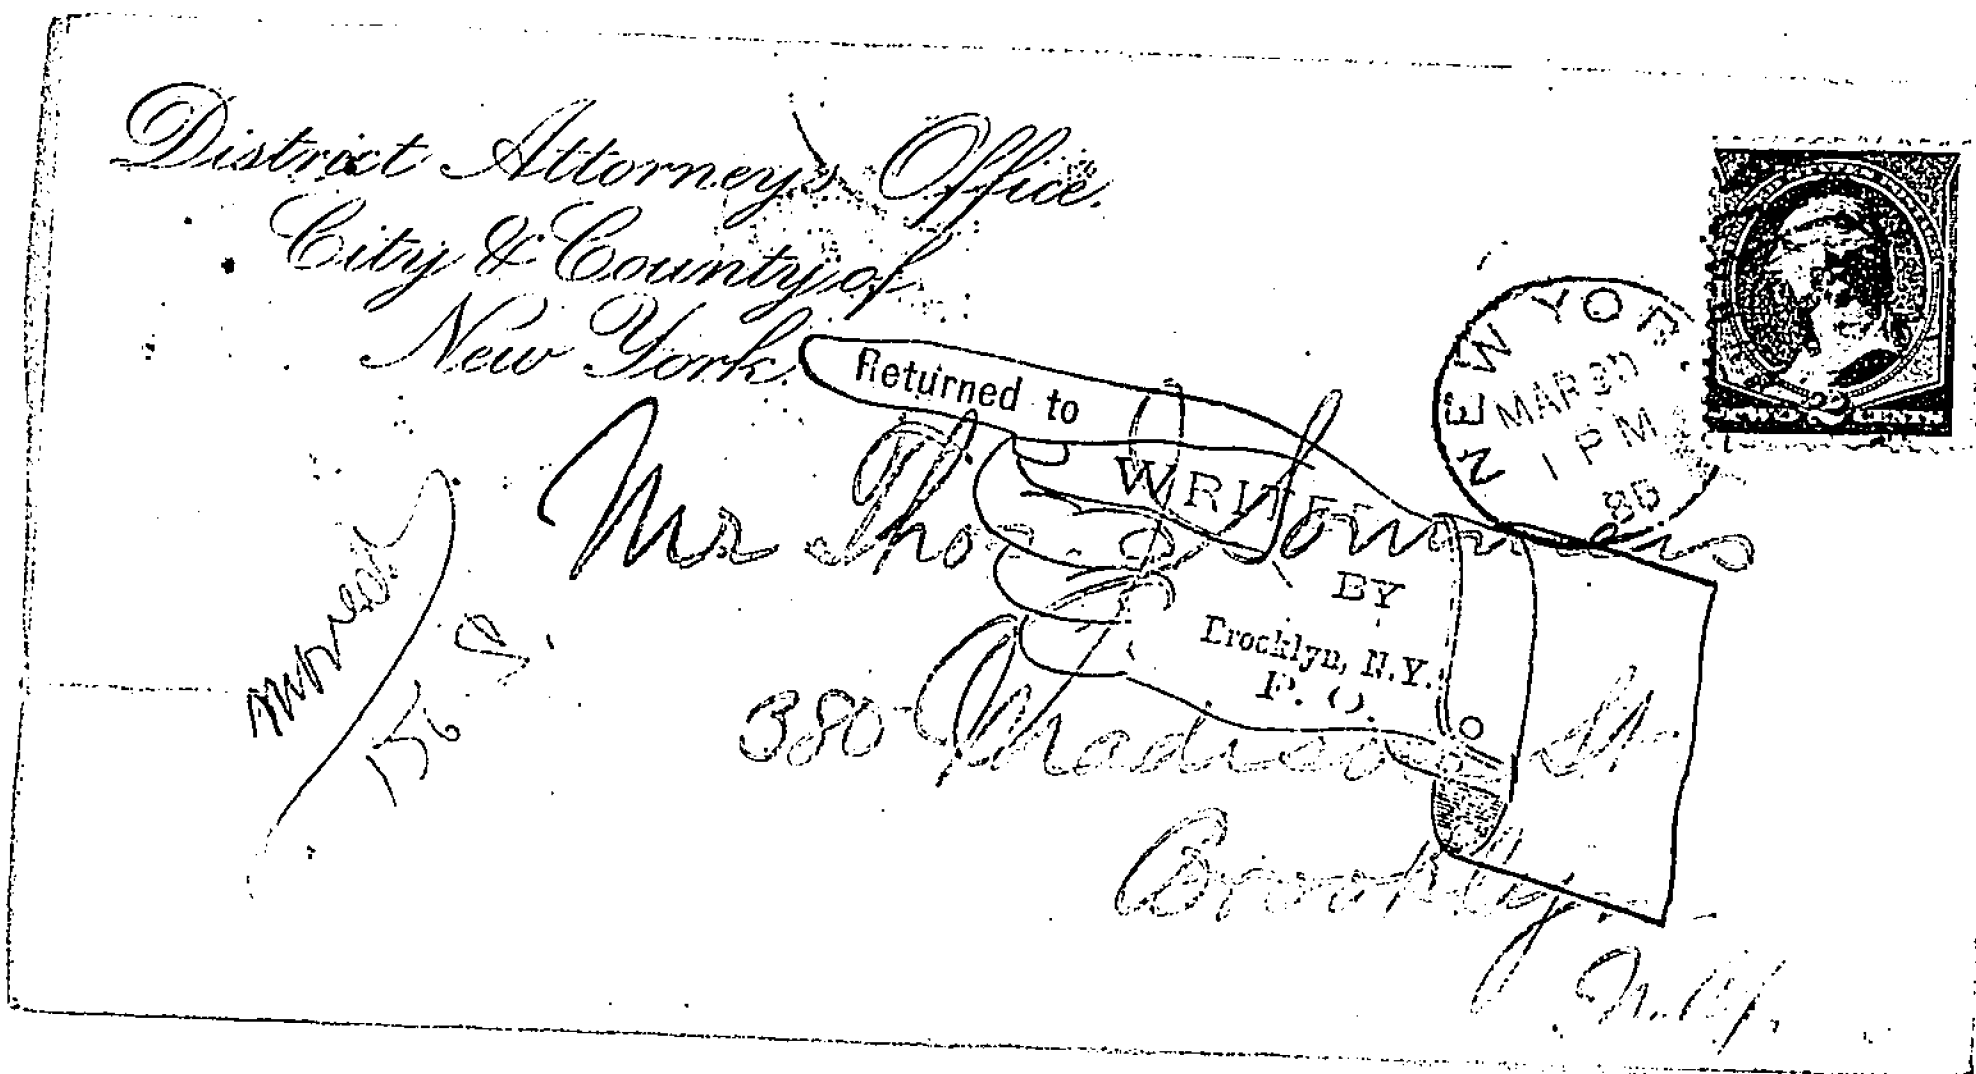 District Attorney's Office.
City & County of
New York.
Returned to
WRITER
BY
Brooklyn, N.Y.
P. O.
NEW YORK
MAR
1 PM
TWO 2 CENTS
Mr Thos.
380 Madison St
Brooklyn
N.Y.
moved
156